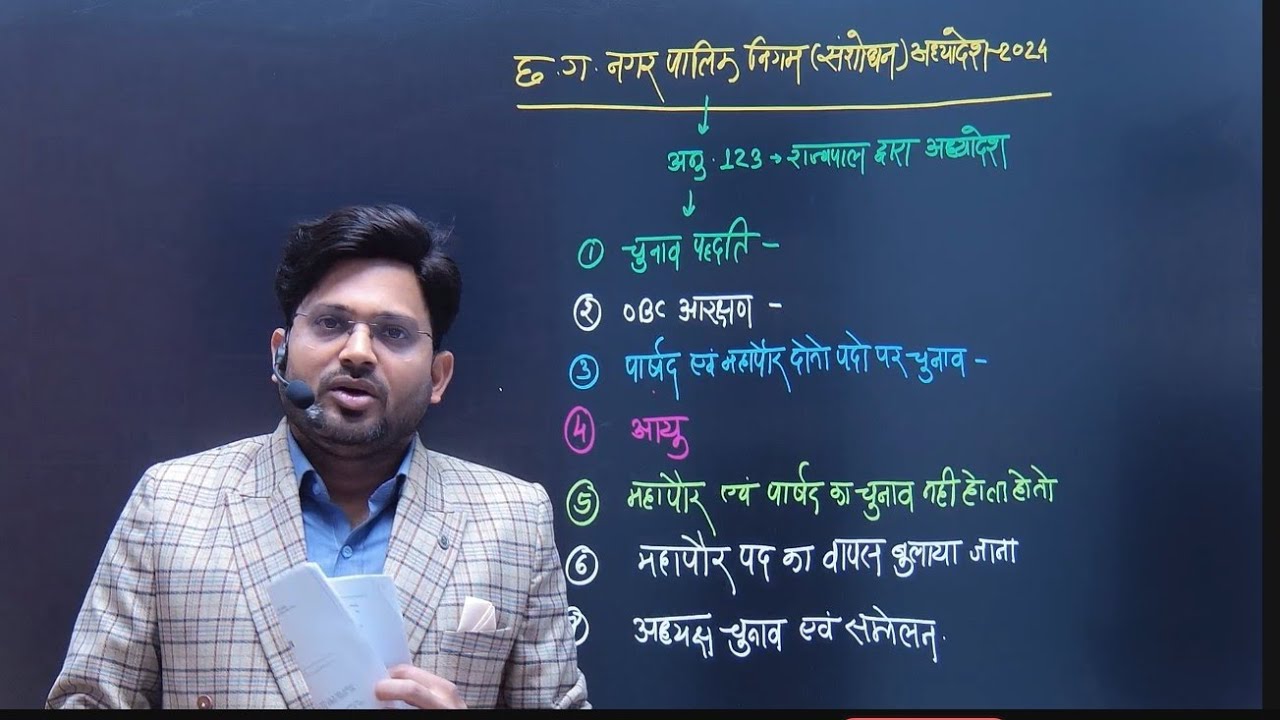 छ.ग. नगर पालिक निगम (संशोधन) अध्यादेश-2024
अनु. 123 → राज्यपाल द्वारा अध्यादेश
① चुनाव पद्दति -
② OBC आरक्षण -
③ पार्षद एवं महापौर दोनो पदो पर चुनाव -
④ आयु
⑤ महापौर एवं पार्षद का चुनाव नही होता हो तो
⑥ महापौर पद का वापस बुलाया जाना
⑦ अध्यक्ष चुनाव एवं सम्मेलन.